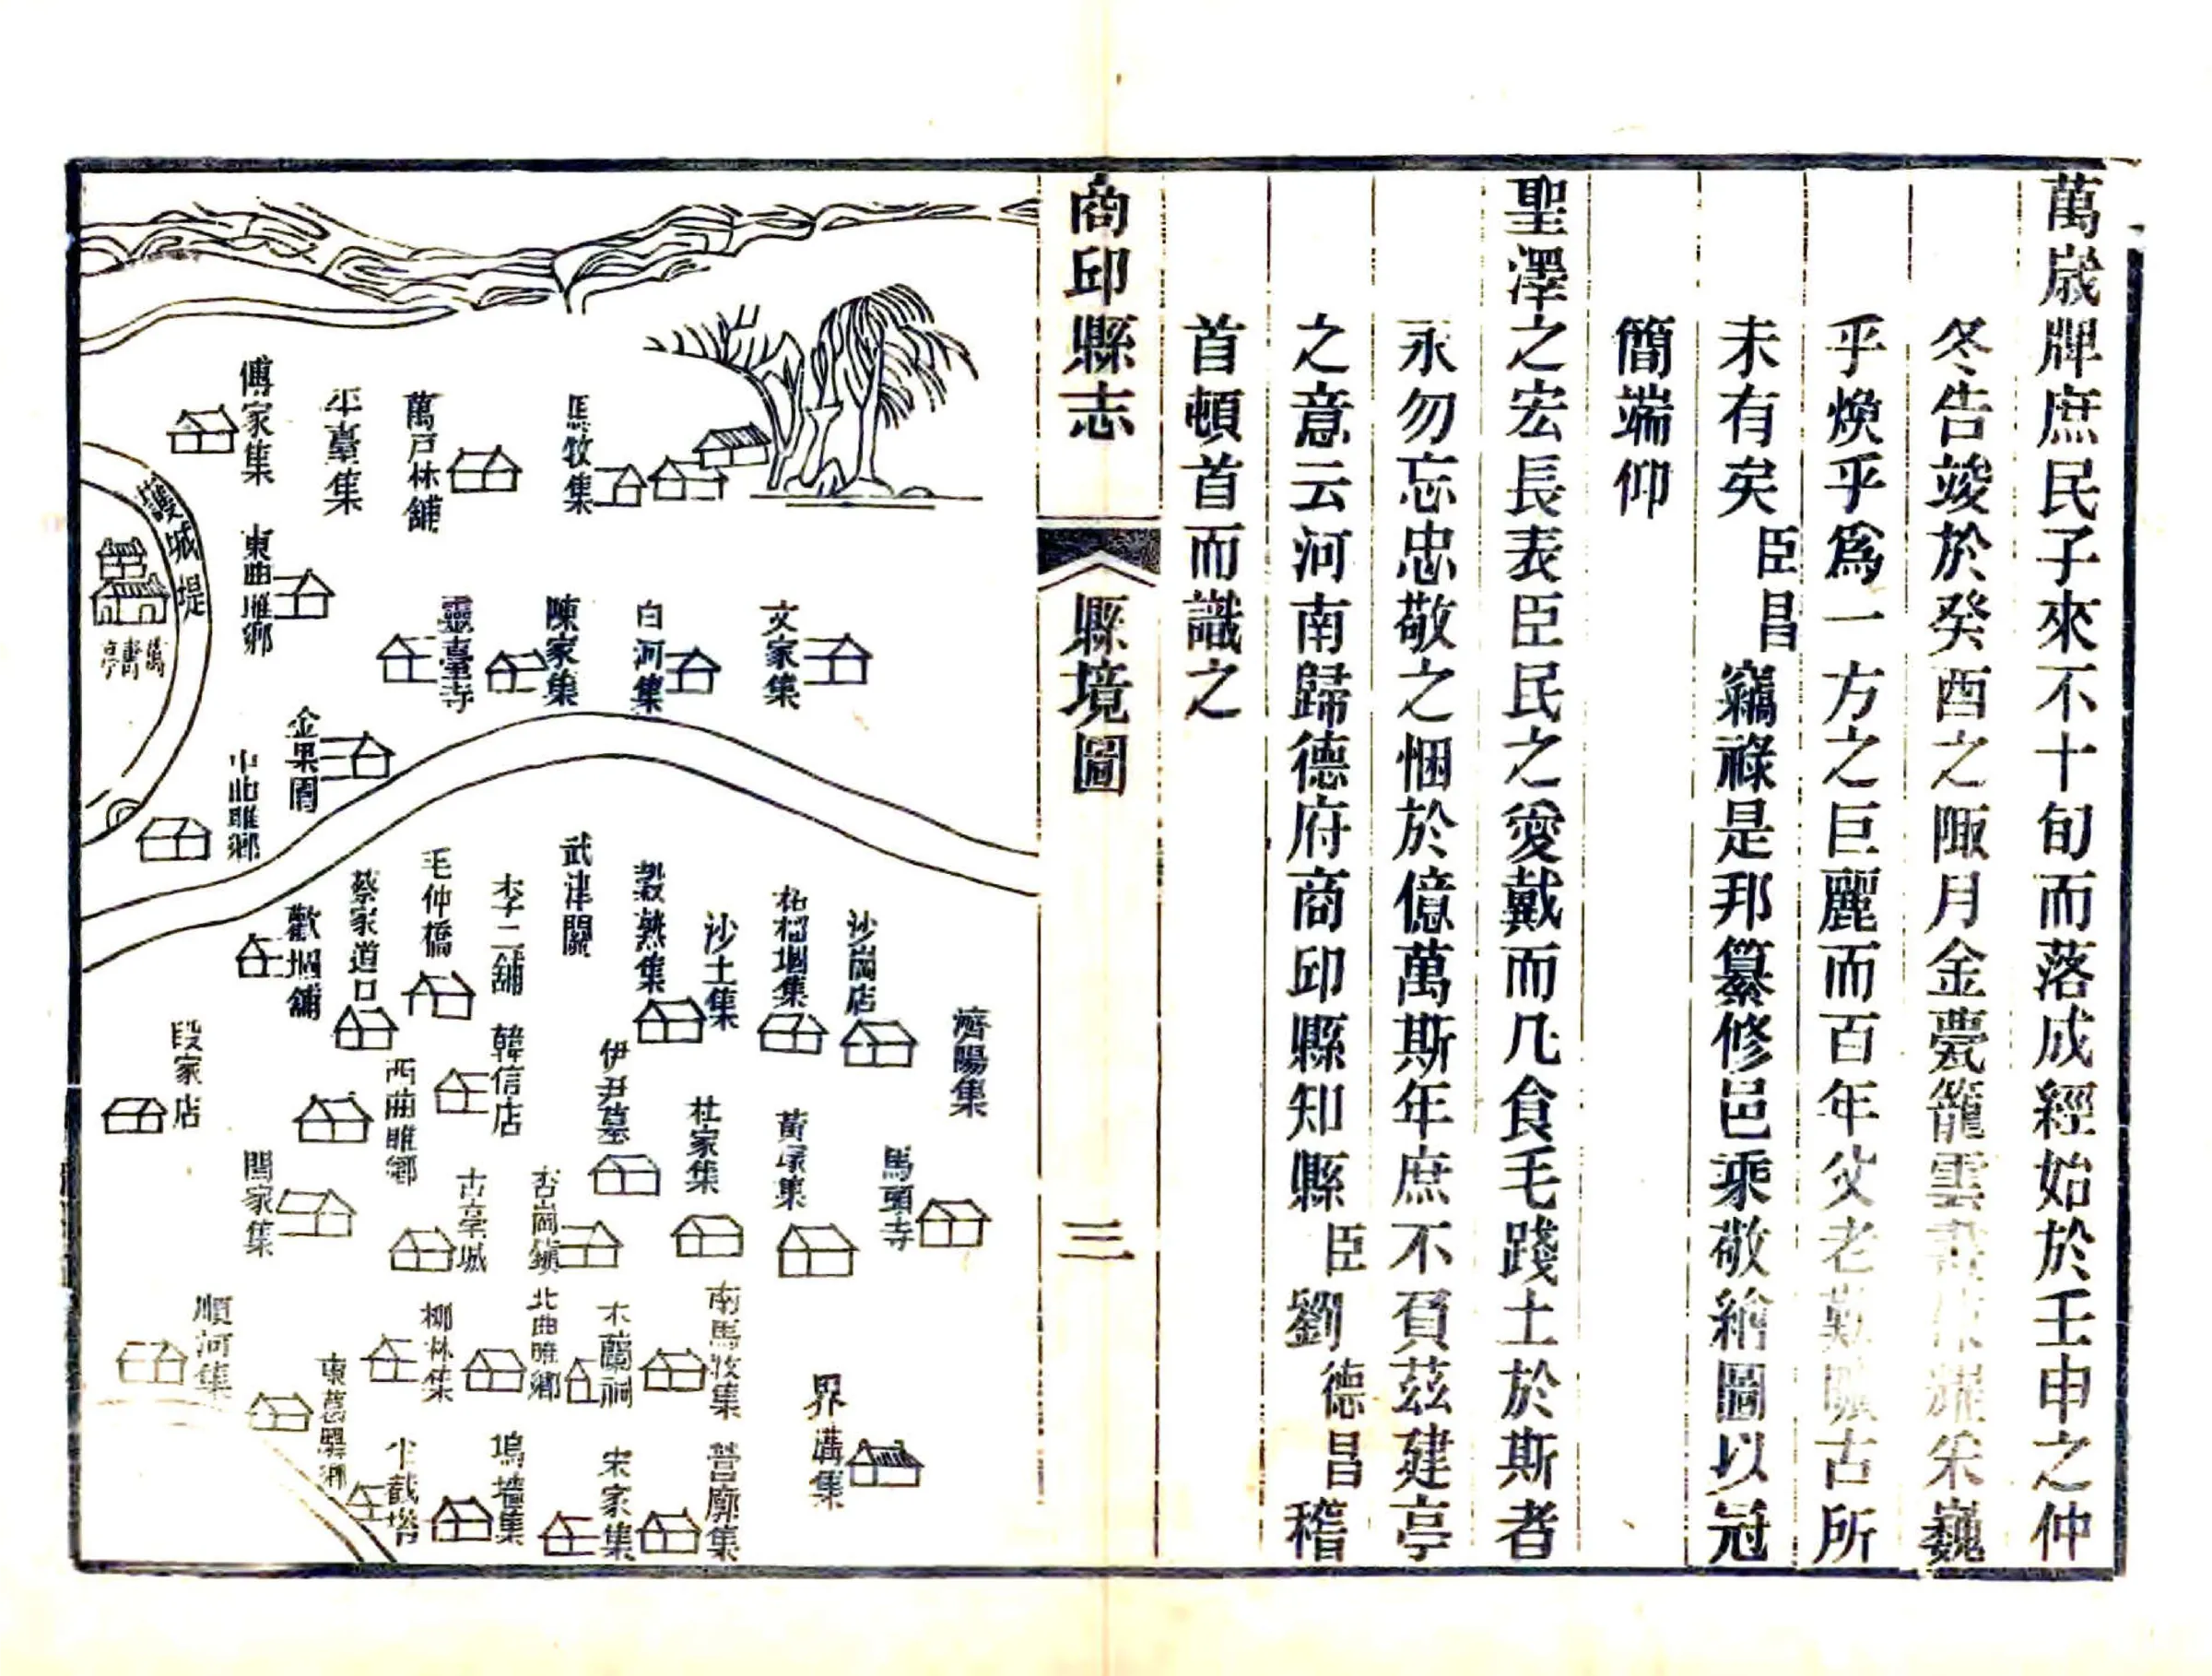 萬歲牌庶民子來不十旬而落成經始於壬申之仲
冬告竣於癸酉之陬月金甍籠雲采巍
乎煥乎爲一方之巨麗而百年父老古所
未有矣臣昌竊祿是邦纂修邑乘敬繪圖以冠
簡端仰
聖澤之宏長表臣民之愛戴而凡食毛踐土於斯者
永勿忘忠敬之悃於億萬斯年庶不負茲建亭
之意云河南歸德府商邱縣知縣臣劉德昌稽
首頓首而識之
商邱縣志
縣境圖
三
馬牧集
萬戶林舖
平臺集
傅家集
護城堤
東曲雎鄉
萬壽亭
文家集
白河集
陳家集
靈臺寺
金果園
中曲雎鄉
濟陽集
沙崗店
柘榴堌集
沙土集
穀熟集
武津關
李二舖
毛仲橋
蔡家道口
歡堌舖
馬頭寺
黃塚集
杜家集
伊尹墓
韓信店
西曲雎鄉
段家店
古亳城
閻家集
界溝集
南馬牧集
木蘭祠
北曲雎鄉
柳林集
順河集
營廓集
宋家集
塢墻集
半截塔